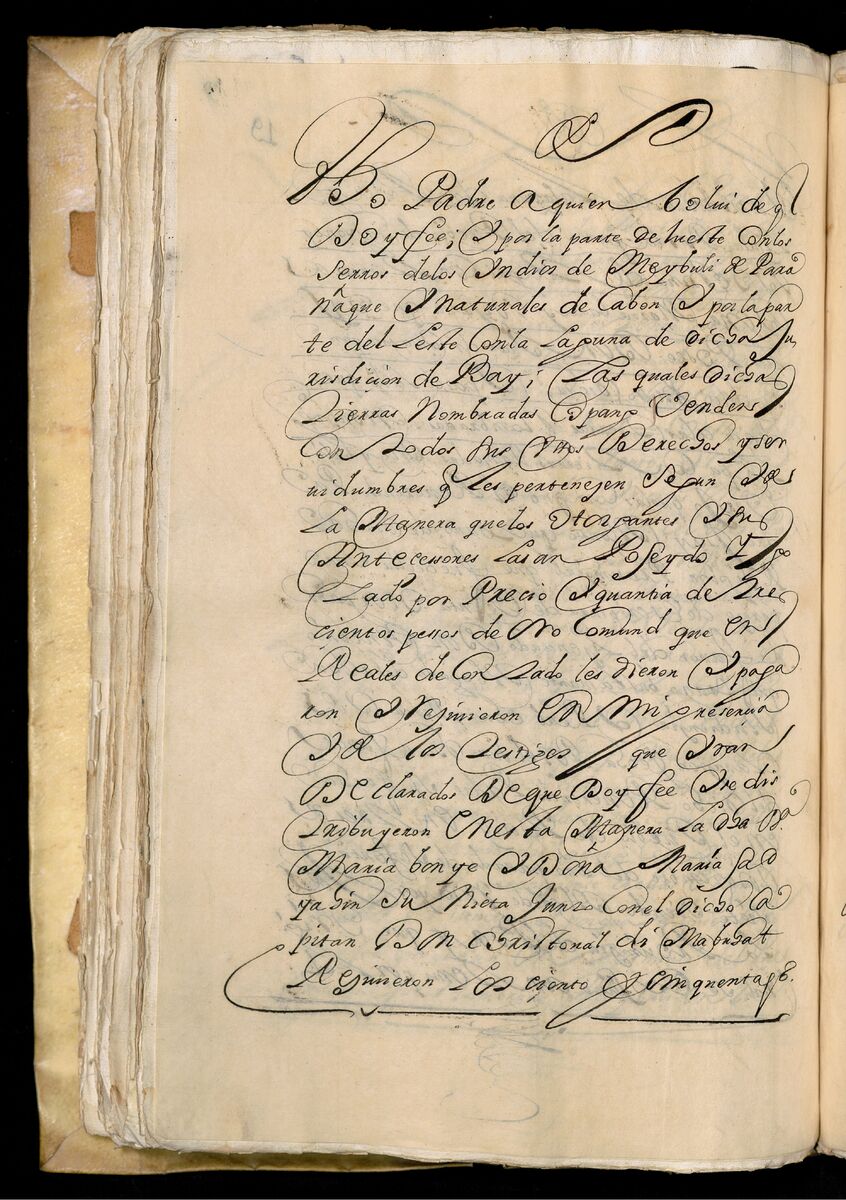 dho Padre a quien bolui de q̃
Doy fee; Y por la parte del ueste Con los
Serros delos Indios de Meybuli & Para
ñaque Y naturales de Cabon Y por la par
te del Leste Con la Laguna de dicha Ju
risdicion de Bay; Las quales dichas
tierras Nombradas Venden
Con todos sus Vsos Derechos y ser
uidumbres q̃ les pertenejen Segun Y de
La Manera que los Otorgantes Y sus
Antecessores Las an Poseydo Y go
zado por Precio Y quantia de tre
cientos pessos de Oro Comund que en
Reales de Contado les dieron Y paga
ron Y Resiuieron en mi presencia
Y de los testigos que Yran
Declarados De que Doy fee Y re dis
tribuyeron en esta Manera La dha Dª.
Maria bonye Y Doña Maria Sad
yabin Su Nieta Junto Con el dicho Ca
pitan Don Christoual di Mabugat
Resiuieron Los ciento y Cinquenta pˢ.